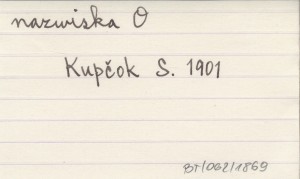 nazwiska O
Kupčok S. 1901
BT/062/1869